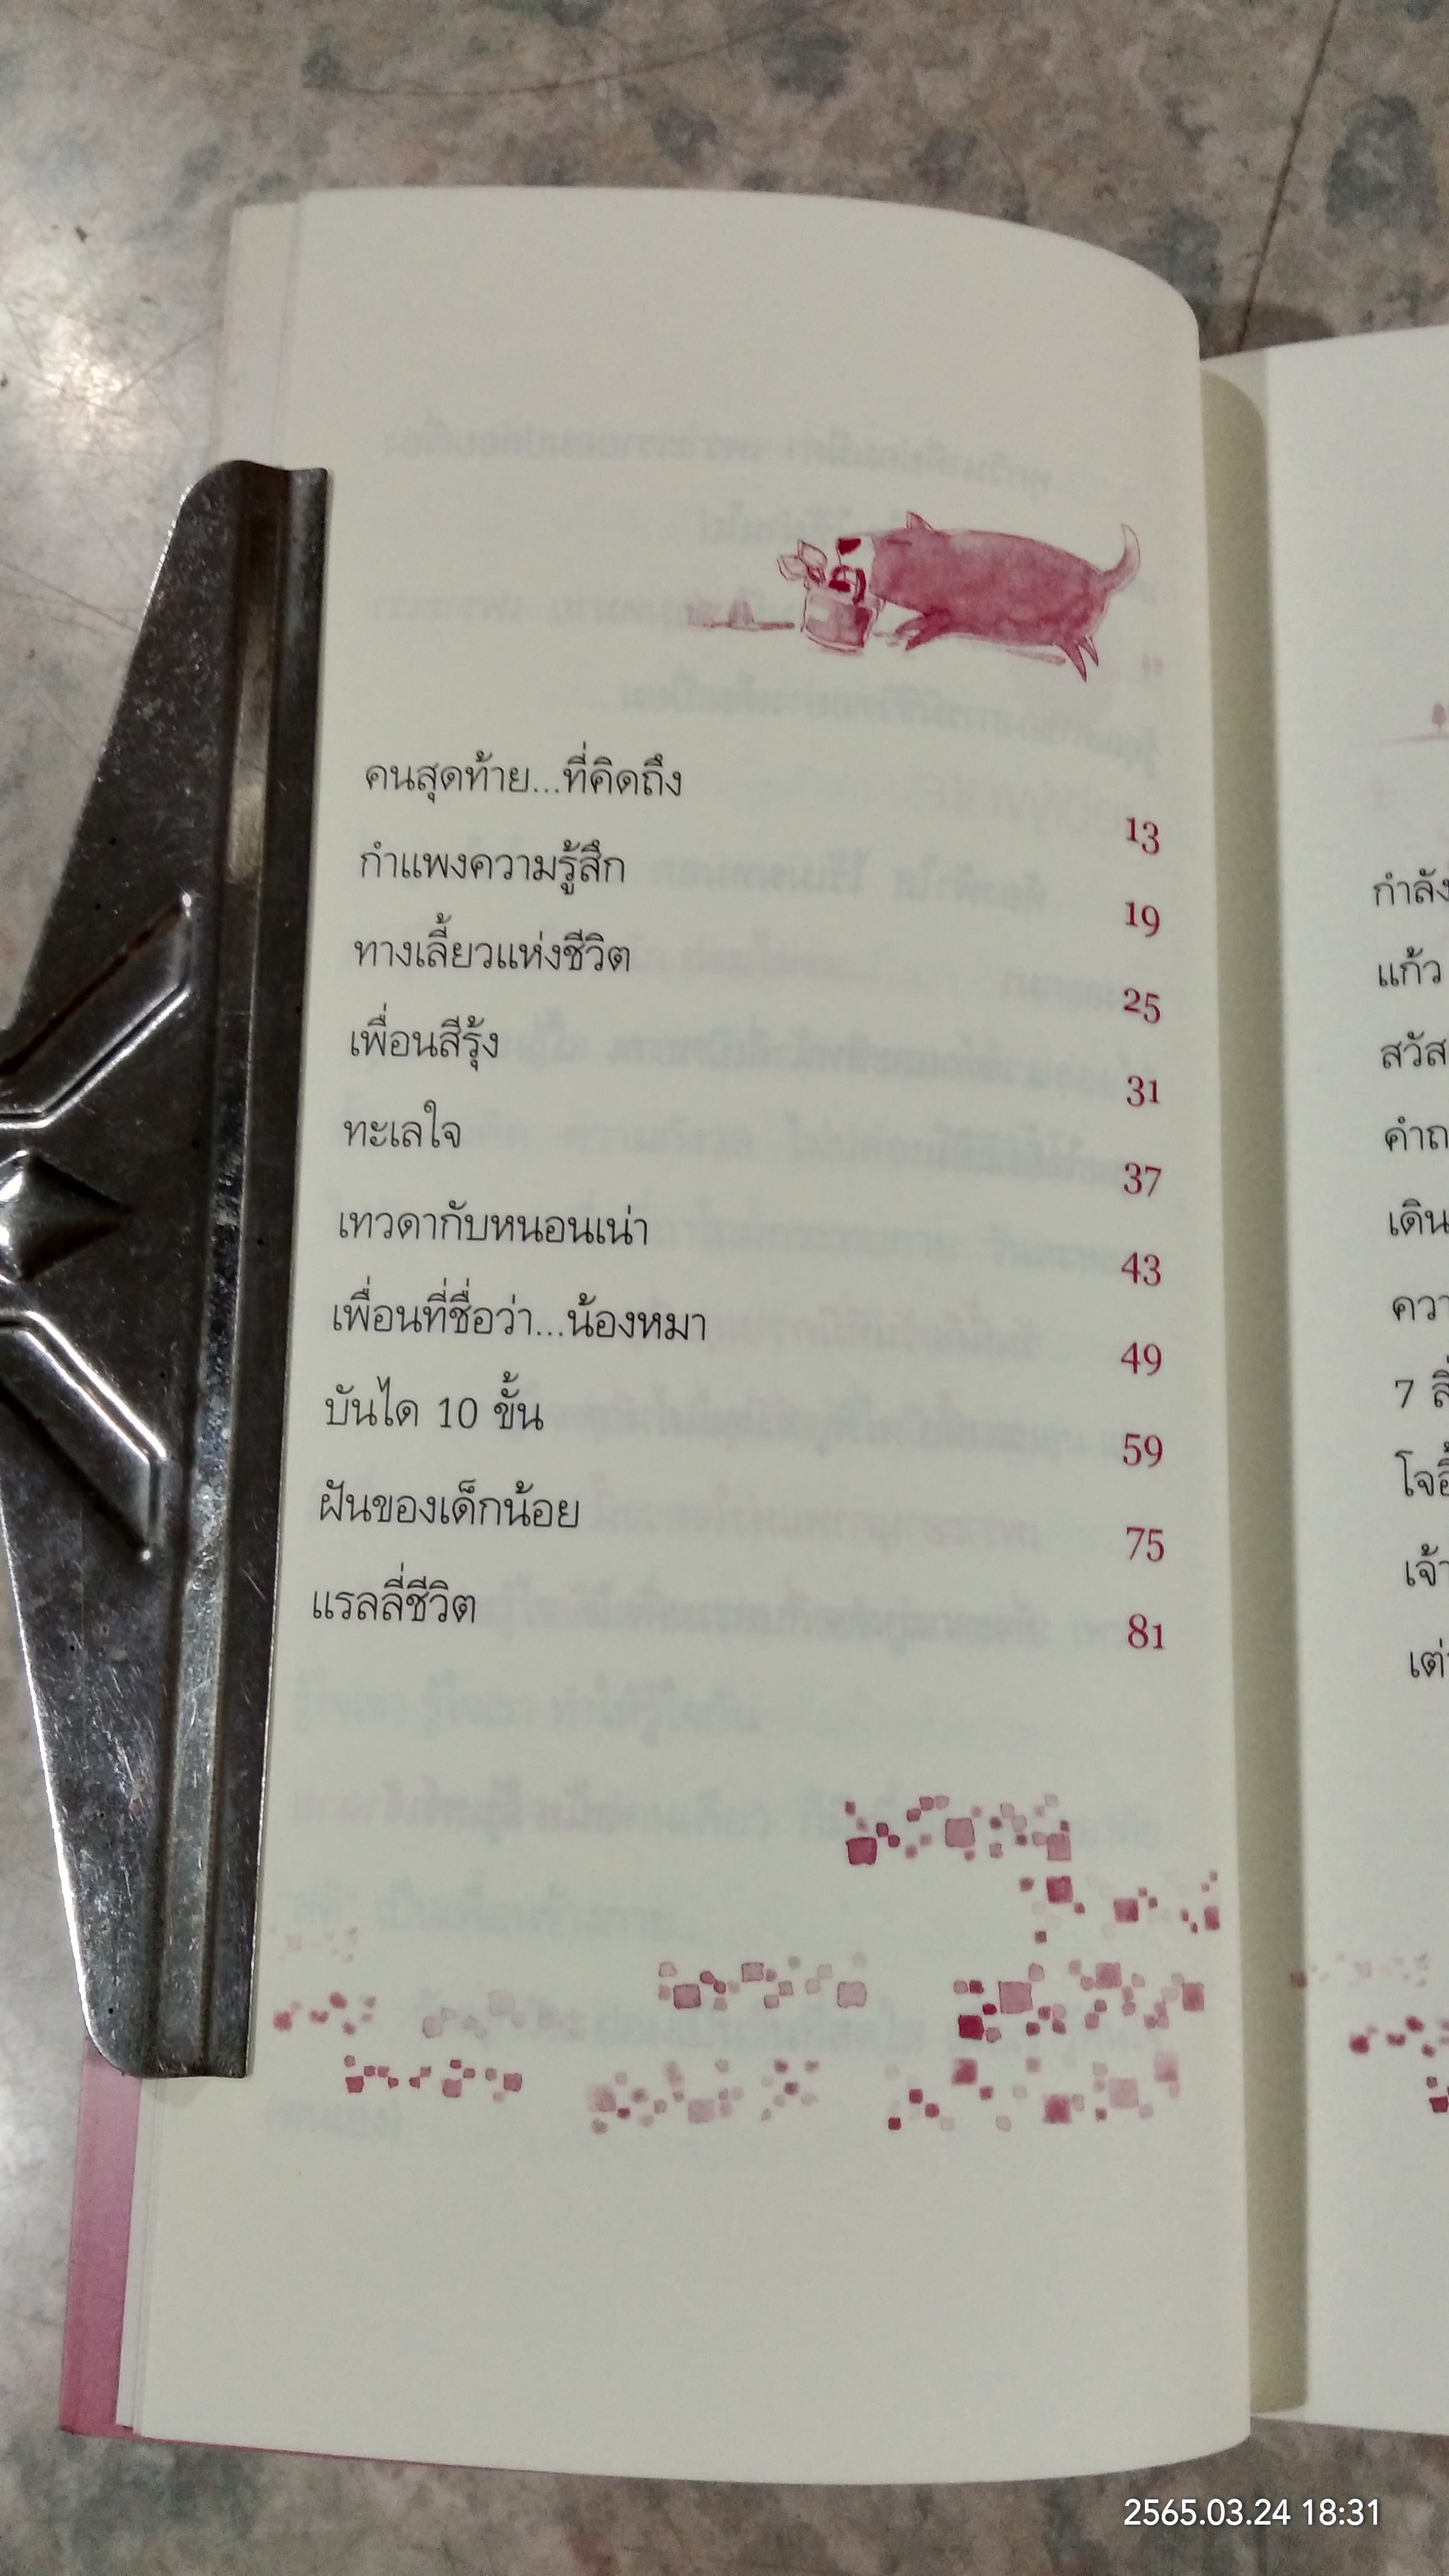 คนสุดท้าย...ที่คิดถึง 13
กำแพงความรู้สึก 19
ทางเลี้ยวแห่งชีวิต 25
เพื่อนสีรุ้ง 31
ทะเลใจ 37
เทวดากับหนอนเน่า 43
เพื่อนที่ชื่อว่า...น้องหมา 49
บันได 10 ขั้น 59
ฝันของเด็กน้อย 75
แรลลี่ชีวิต 81
กำลัง
แก้ว
สวัส
คำถ
เดิน
ควา
7 สิ
โจอี้
เจ้า
เต่
2565.03.24 18:31